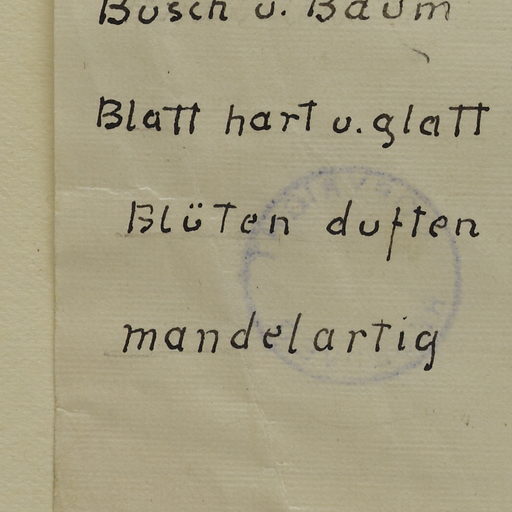 Busch u. Baum
Blatt hart u. glatt
Blüten duften
mandelartig